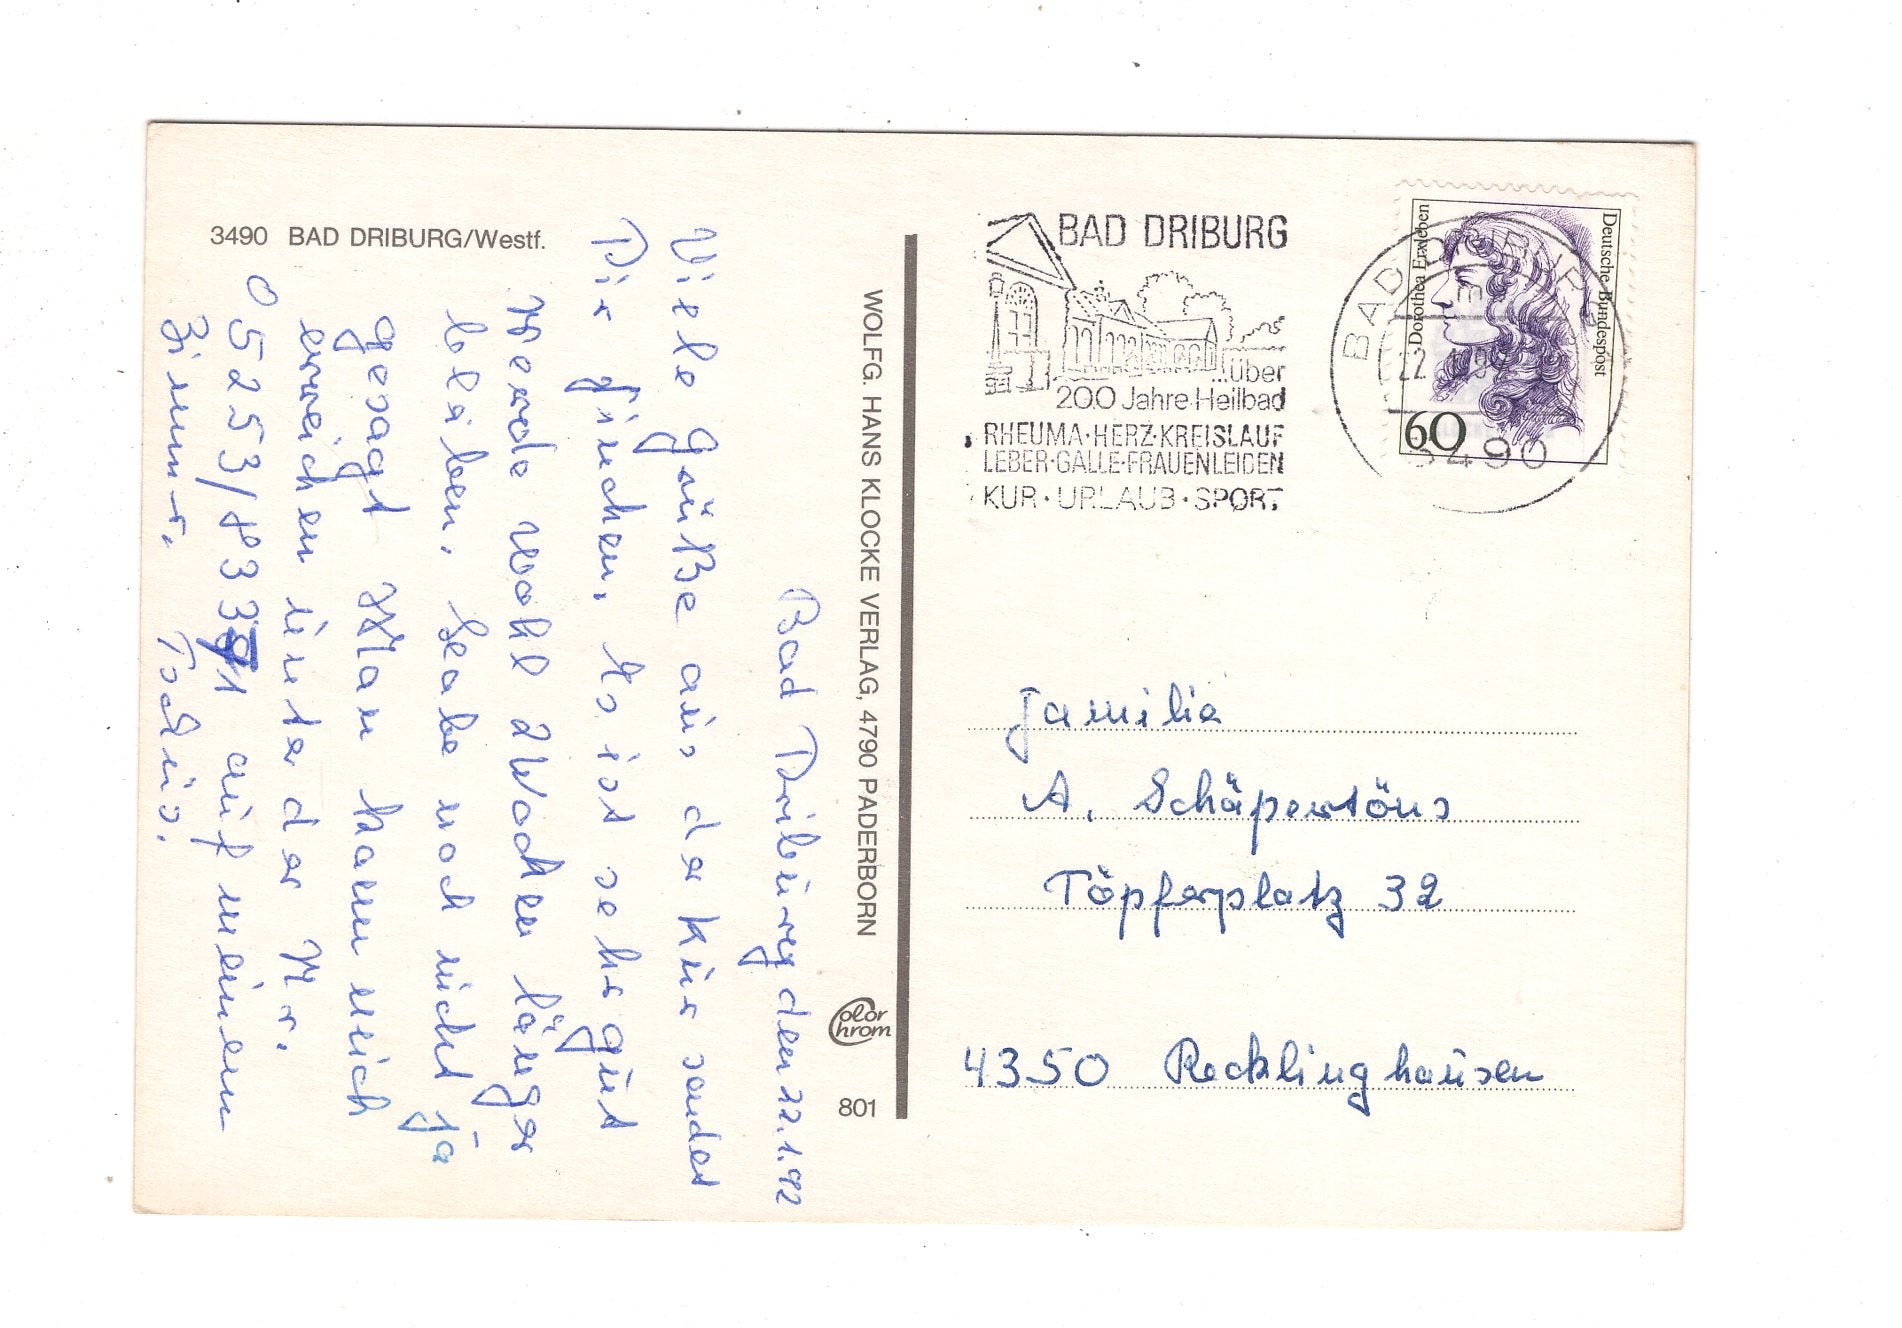 3490 BAD DRIBURG/Westf.
Bad Driburg den 22.1.92
Viele Grüße aus der Kur sendet
Dir Finchen. Es ist sehr gut
Werde wohl 2 Wochen länger
bleiben. Habe noch nicht ja
gesagt Man kann mich
erreichen unter der Nr.
auf meinem
Zimmer. Tschüs.
WOLFG. HANS KLOCKE VERLAG, 4790 PADERBORN
Color
Chrom
801
BAD DRIBURG
...über
200 Jahre Heilbad
RHEUMA·HERZ·KREISLAUF
LEBER·GALLE·FRAUENLEIDEN
KUR·URLAUB·SPORT
BAD DRIBURG
3490
Dorothea Erxleben
Deutsche Bundespost
60
Familie
A. Schäpertöns
Töpferplatz 32
4350 Recklinghausen